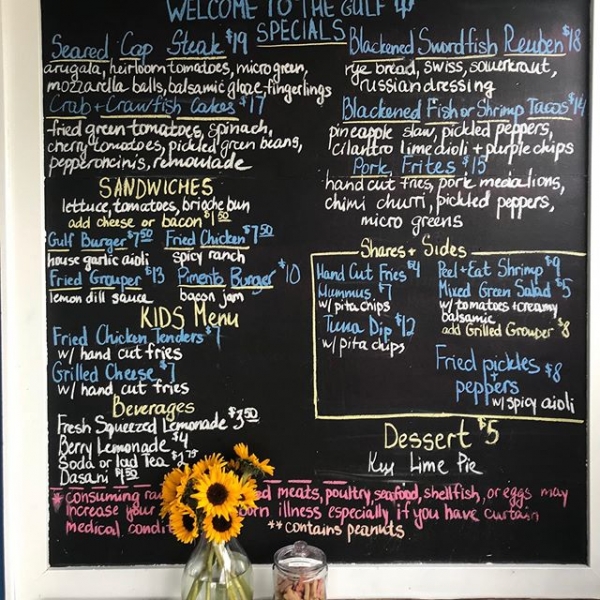 WELCOME TO THE GULF
SPECIALS
Seared Cap Steak $19
arugala, heirloom tomatoes, microgreen,
mozzarella balls, balsamic glaze, fingerlings
Crab + Crawfish Cakes $17
fried green tomatoes, spinach,
cherry tomatoes, pickled green beans,
pepperoncinis, remoulade
Blackened Swordfish Reuben $18
rye bread, swiss, sauerkraut,
russian dressing
Blackened Fish or Shrimp Tacos $14
pineapple slaw, pickled peppers,
cilantro lime aioli + purple chips
Pork Frites $15
hand cut fries, pork medallions,
chimi churri, pickled peppers,
micro greens
SANDWICHES
lettuce, tomatoes, brioche bun
add cheese or bacon $1.50
Gulf Burger $7.50 Fried Chicken $7.50
house garlic aioli spicy ranch
Fried Grouper $13 Pimento Burger $10
lemon dill sauce bacon jam
KIDS Menu
Fried Chicken Tenders $7
w/ hand cut fries
Grilled Cheese $7
w/ hand cut fries
Beverages
Fresh Squeezed Lemonade $3.50
Berry Lemonade $4
Soda or Iced Tea $2.79
Dasani $1.50
Shares + Sides
Hand Cut Fries $4
Hummus $7
w/ pita chips
Tuna Dip $12
w/ pita chips
Peel + Eat Shrimp $9
Mixed Green Salad $5
w/ tomatoes + creamy
balsamic
add Grilled Grouper $8
Fried pickles +
peppers $8
w/ spicy aioli
Dessert $5
Key Lime Pie
*consuming meats, poultry, seafood, shellfish, or eggs may
increase your illness especially if you have curtain
medical
**contains peanuts